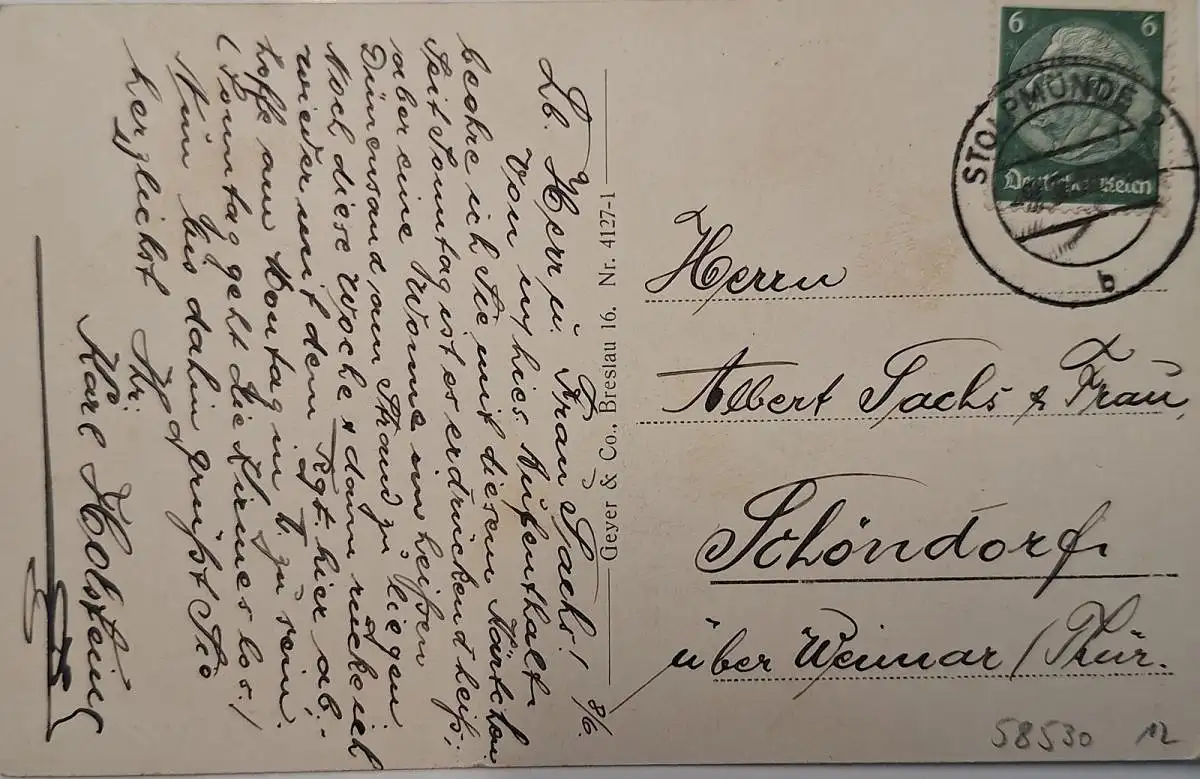 8/6.
Lb. Herr u. Frau Sachs!
Von m/ hies. Aufenthalt
beehre ich Sie mit diesem Kärtchen
Seit Sonntag ist es erdrückend heiß;
aber eine Wonne im heißen
Dünensand am Strand zu liegen.
Noch diese Woche & dann rücke ich
wieder mit dem Rgt. hier ab;
hoffe am Montag in T. zu sein.
(Sonntag geht die Kirmes los!)
Nun bis dahin grüßt Sie
herzlichst Ihr
Karl
Geyer & Co., Breslau 16. Nr. 4177-1
6 6
Deutsches Reich
STOLPMÜNDE
b
Herrn
Albert Sachs & Frau,
Schöndorf
über Weimar / Thür.
58530 12